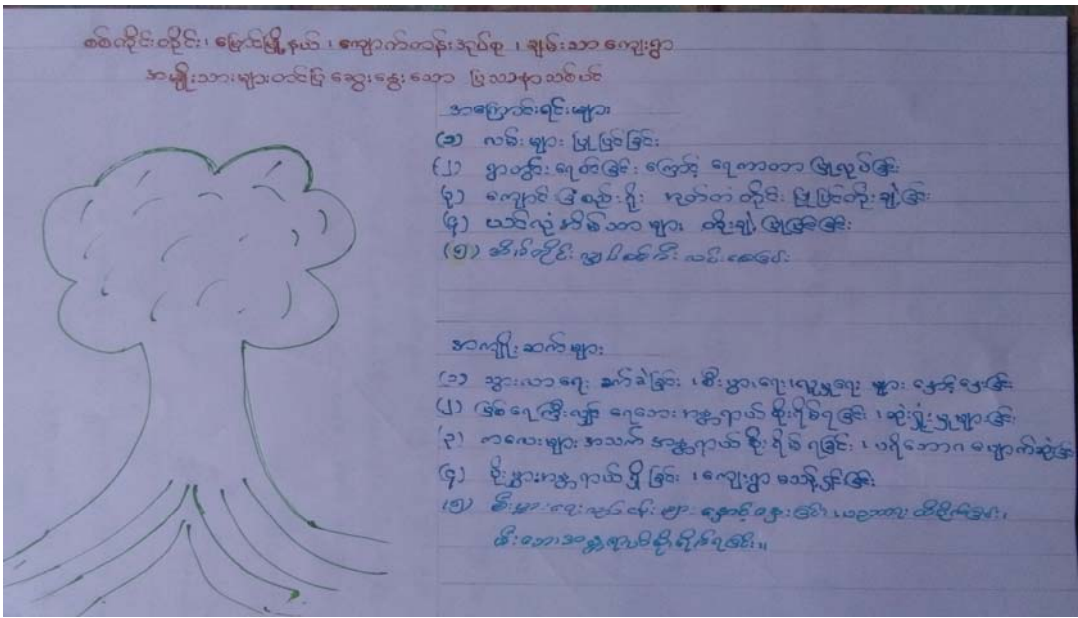 စစ်ကိုင်းတိုင်း၊ မြောင်မြို့နယ်၊ ကျောက်တန်းအုပ်စု၊ ချမ်းသာကျေးရွာ
အမျိုးသားများတင်ပြဆွေးနွေးသော ပြဿနာသစ်ပင်
အကြောင်းရင်းများ
(၁) လမ်းများ ပြုပြင်ခြင်း
(၂) ရွာတွင်း ရေဝင်ခြင်းကြောင့် ရေကာတာ ပြုလုပ်ခြင်း
(၃) ကျောင်းခြံစည်းရိုး အုတ်တံတိုင်း ပြုပြင်တိုးချဲ့ခြင်း
(၄) ယင်လုံအိမ်သာများ တိုးချဲ့ပြုပြင်ခြင်း
(၅) အိမ်တိုင်း လျှပ်စစ်မီး လင်းစေခြင်း
အကျိုးဆက်များ
(၁) သွားလာရေး ခက်ခဲခြင်း၊ စီးပွားရေး၊ လူမှုရေးများ နှောင့်နှေးခြင်း
(၂) မြစ်ရေကြီးလျှင် ရေဘေးအန္တရာယ် စိုးရိမ်ရခြင်း၊ ဆုံးရှုံးမှုများခြင်း
(၃) ကလေးများ အသက်အန္တရာယ် စိုးရိမ်ရခြင်း၊ ပရိဘောဂ ပျောက်ဆုံးခြင်း
(၄) အန္တရာယ်ရှိခြင်း၊ ကျေးရွာ မသန့်ရှင်းခြင်း
(၅) စီးပွားရေးလုပ်ငန်းများ နှောင့်နှေးခြင်း၊ ပညာရေး ထိခိုက်ခြင်း၊
မီးဘေးအန္တရာယ်စိုးရိမ်ရခြင်း။